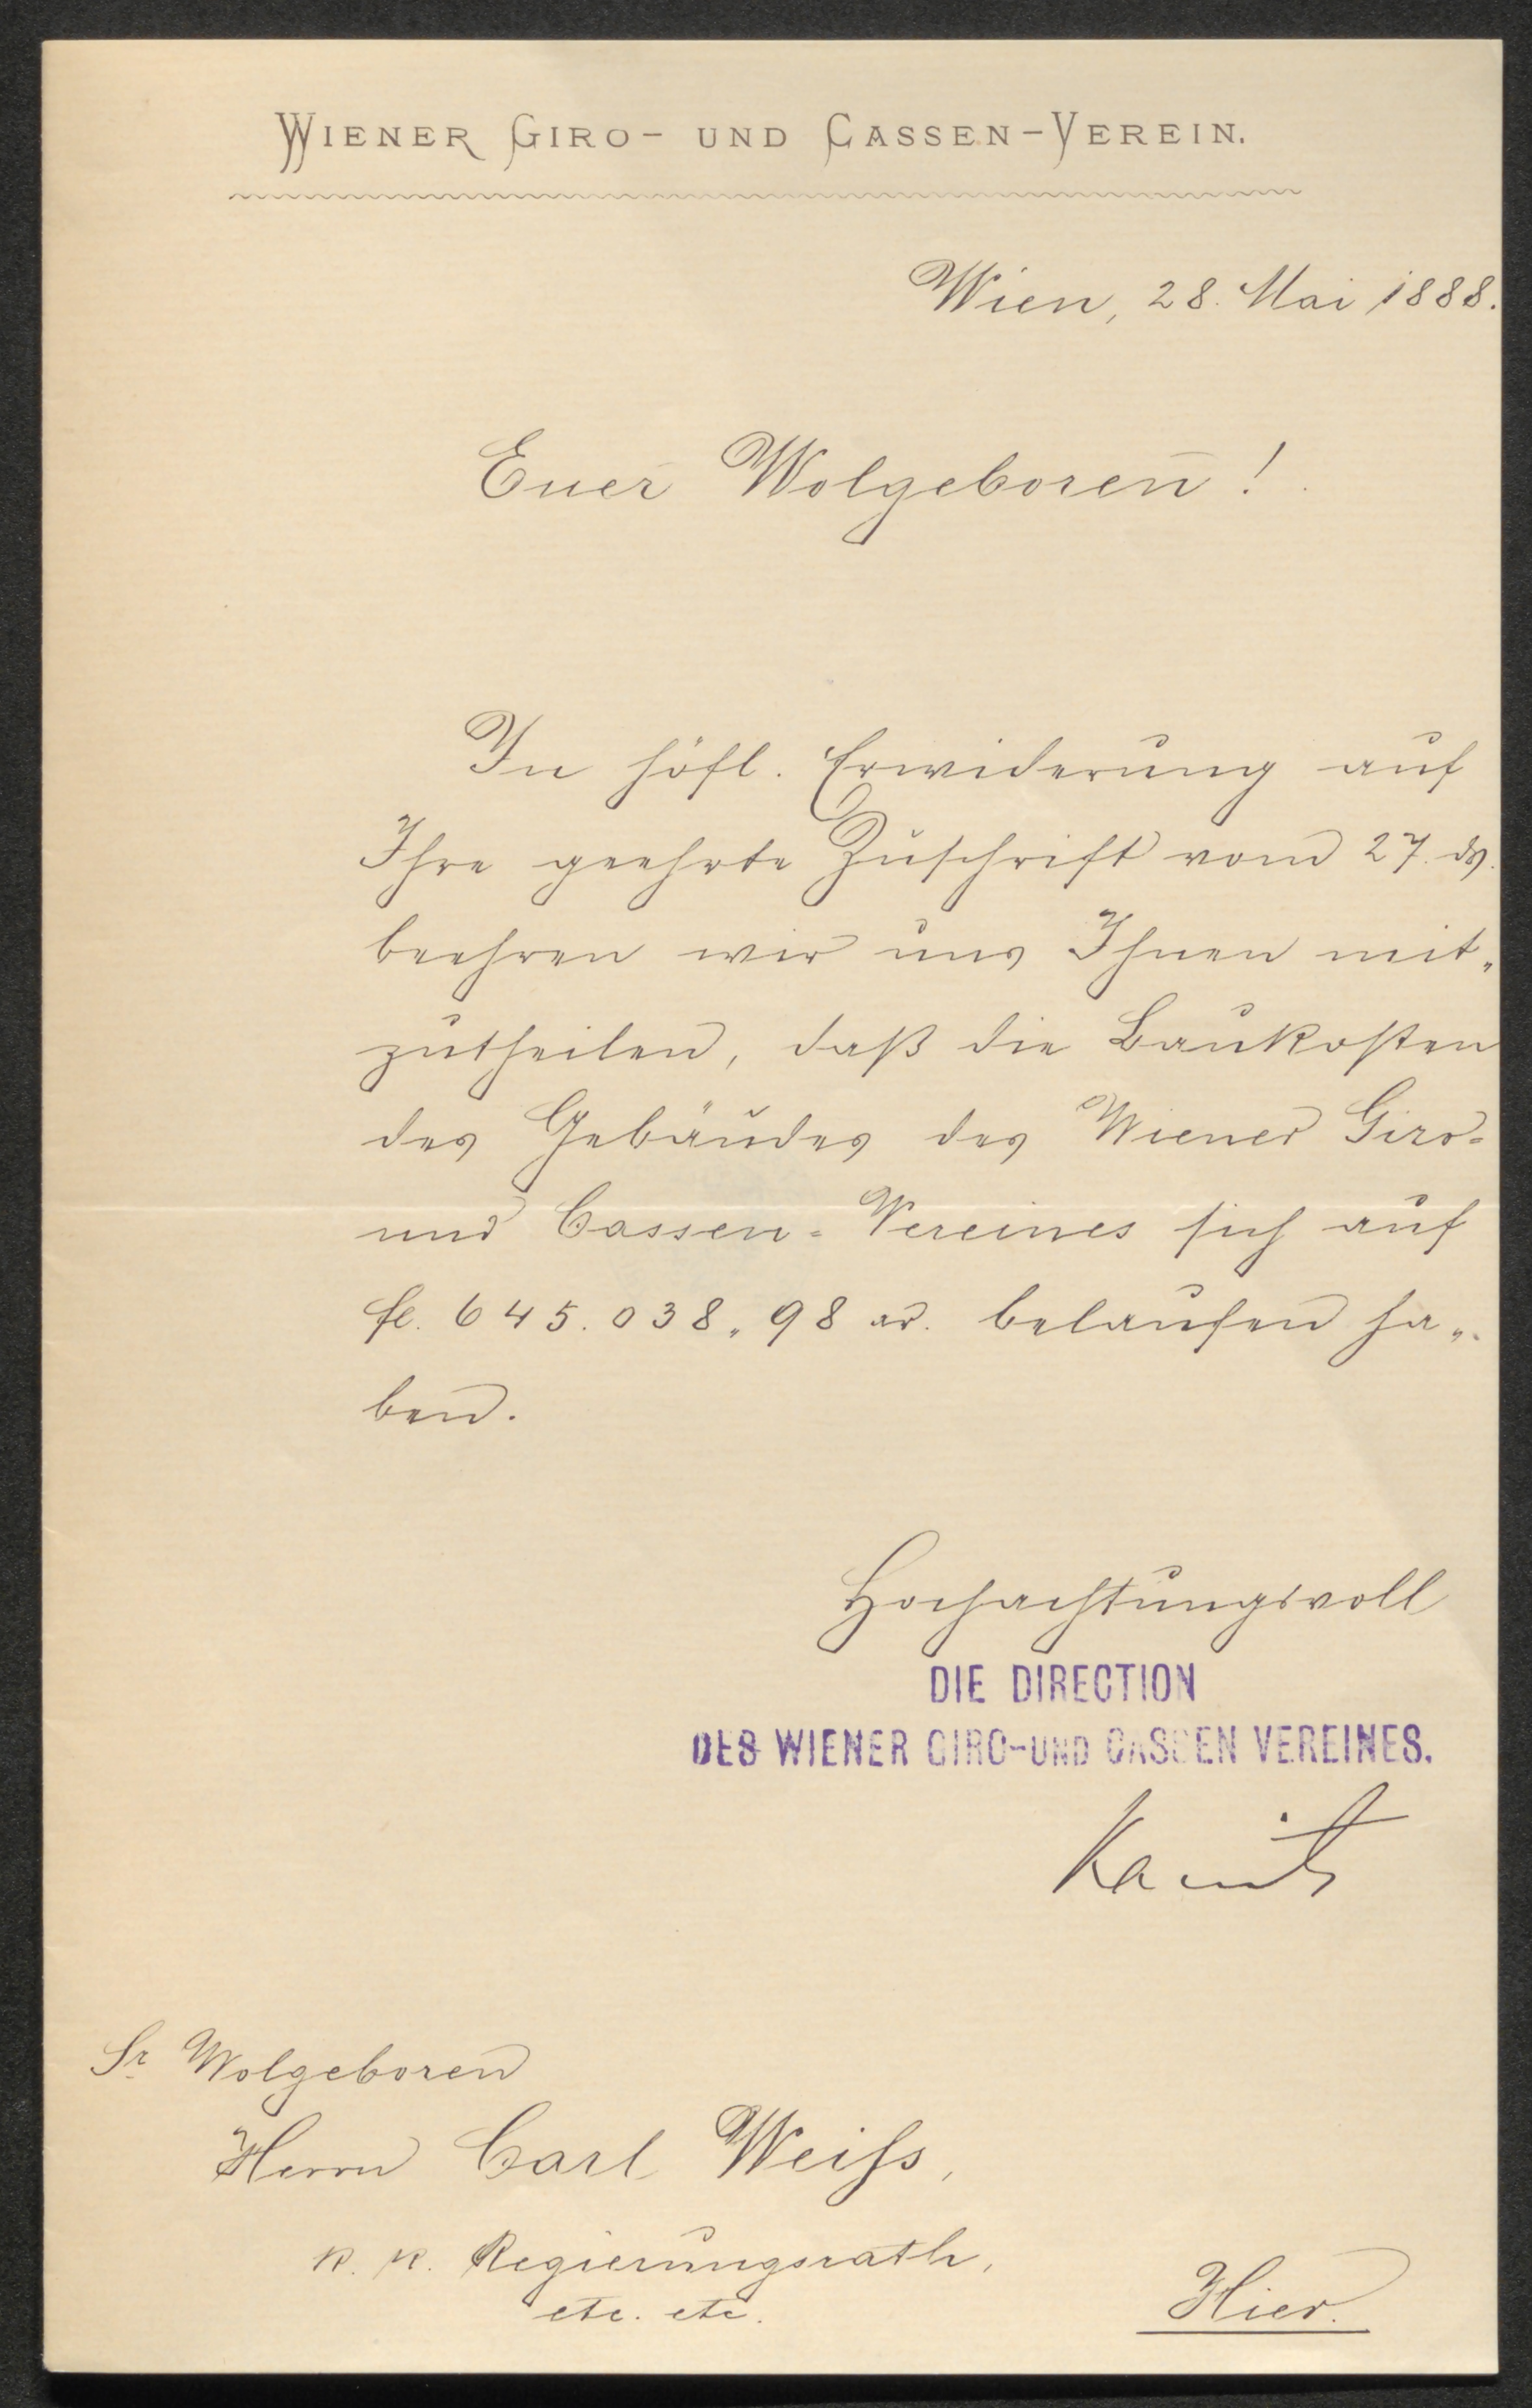 WIENER GIRO- UND CASSEN-VEREIN.
Wien, 28. Mai 1888.
Euer Wolgeboren!
In höfl. Erwiderung auf
Ihre geehrte Zuschrift vom 27. ds.
beehren wir uns Ihnen mit„
zutheilen, daß die Baukosten
des Gebäudes des Wiener Giro=
und Cassen=Vereines sich auf
fl. 645.038„98 belaufen ha„
ben.
Hochachtungsvoll
DIE DIRECTION
DES WIENER GIRO-UND CASSEN VEREINES.
Sr Wolgeboren
Herrn Carl Weiss,
k. k. Regierungsrath,
etc. etc.
Hier.